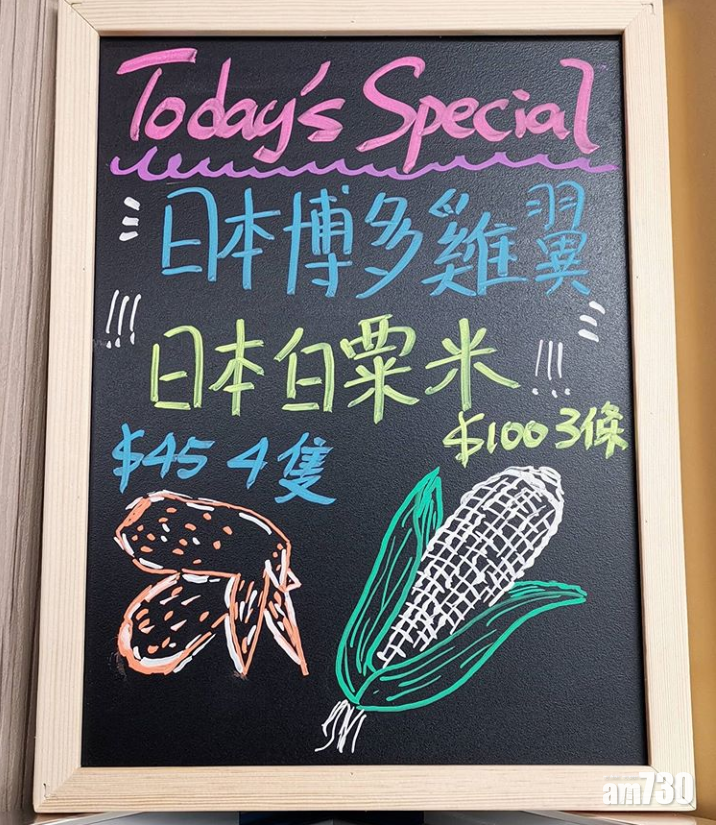 Today's Special
日本博多雞翼
日本白粟米
$100 3條
$45 4隻
am730